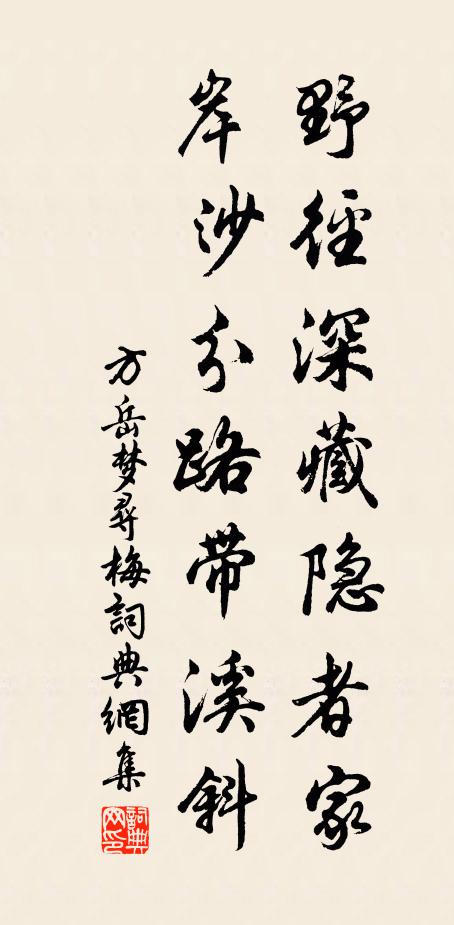 野徑深藏隐者家
岸沙分路帶溪斜
方岳梦尋梅詞典網集
詞典网印